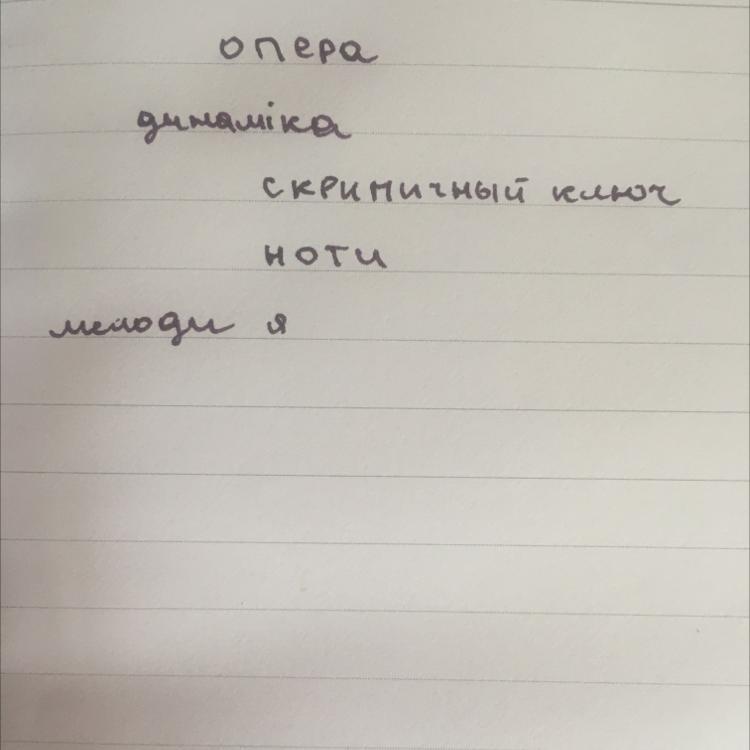 опера
динаміка
скрипичный ключ
ноти
мелоди я